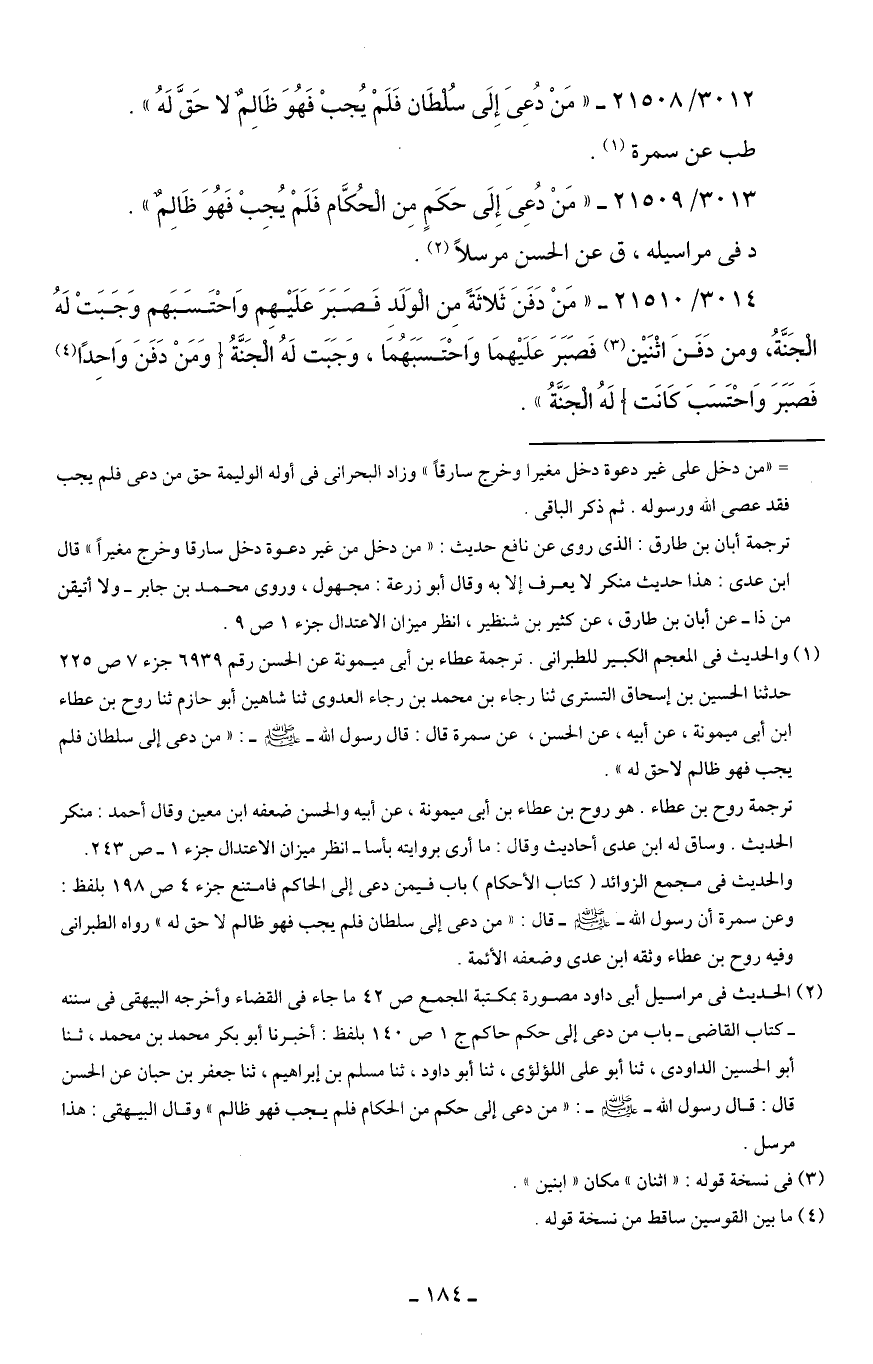 ٣٠١٢/ ٢١٥٠٨ ـ « مَنْ دُعِىَ إِلَى سُلْطَان فَلَمْ يُجِبْ فَهُوَ ظَالِمٌ لا حَقَّ لَهُ » .
طب عن سمرة (١) .
٣٠١٣/ ٢١٥٠٩ ـ « مَنْ دُعِىَ إِلَى حَكَمٍ مِن الْحُكَّام فَلَمْ يُجِبْ فَهُوَ ظَالِمٌ » .
د فى مراسيله ، ق عن الحسن مرسلاً (٢) .
٣٠١٤/ ٢١٥١٠ ـ « مَنْ دَفَن ثَلاثَةً مِن الْوَلَد فَصَبَرَ عَلَيْهِم وَاحْتَسَبَهم وَجَبَتْ لَهُ
الْجَنَّةُ، ومن دَفَنَ اثْنَيْن(٣) فَصَبَرَ عَلَيْهمَا وَاحْتَسَبَهُمَا ، وَجَبَت لَهُ الْجَنَّةُ { وَمَنْ دَفَنَ وَاحِدًا(٤)
فَصَبَرَ وَاحْتَسَبَ كَانَت } لَهُ الْجَنَّةُ » .
= «من دخل على غير دعوة دخل مغيرا وخرج سارقاً » وزاد البحرانى فى أوله الوليمة حق من دعى فلم يجب
فقد عصى الله ورسوله . ثم ذكر الباقى .
ترجمة أبان بن طارق : الذى روى عن نافع حديث : « من دخل من غير دعوة دخل سارقا وخرج مغيراً » قال
ابن عدى : هذا حديث منكر لا يعرف إلا به وقال أبو زرعة : مجهول ، وروى محمد بن جابر ـ ولا أتيقن
من ذا ـ عن أبان بن طارق ، عن كثير بن شنظير ، انظر ميزان الاعتدال جزء ١ ص ٩ .
(١) والحديث فى المعجم الكبير للطبرانى . ترجمة عطاء بن أبى ميمونة عن الحسن رقم ٦٩٣٩ جزء ٧ ص ٢٢٥
حدثنا الحسين بن إسحاق التسترى ثنا رجاء بن محمد بن رجاء العدوى ثنا شاهين أبو حازم ثنا روح بن عطاء
ابن أبى ميمونة ، عن أبيه ، عن الحسن ، عن سمرة قال : قال رسول الله ـ ﷺ ـ : « من دعى إلى سلطان فلم
يجب فهو ظالم لاحق له » .
ترجمة روح بن عطاء . هو روح بن عطاء بن أبى ميمونة ، عن أبيه والحسن ضعفه ابن معين وقال أحمد : منكر
الحديث . وساق له ابن عدى أحاديث وقال : ما أرى بروايته بأسا ـ انظر ميزان الاعتدال جزء ١ ـ ص ٢٤٣.
والحديث فى مجمع الزوائد ( كتاب الأحكام ) باب فيمن دعى إلى الحاكم فامتنع جزء ٤ ص ١٩٨ بلفظ :
وعن سمرة أن رسول الله ـ ﷺ ـ قال : « من دعى إلى سلطان فلم يجب فهو ظالم لا حق له » رواه الطبرانى
وفيه روح بن عطاء وثقه ابن عدى وضعفه الأئمة .
(٢) الحديث فى مراسيل أبى داود مصورة بمكتبة المجمع ص ٤٢ ما جاء فى القضاء وأخرجه البيهقى فى سننه
ـ كتاب القاضى ـ باب من دعى إلى حكم حاكم ج ١ ص ١٤٠ بلفظ : أخبرنا أبو بكر محمد بن محمد ، ثنا
أبو الحسين الداودى ، ثنا أبو على اللؤلؤى ، ثنا أبو داود ، ثنا مسلم بن إبراهيم ، ثنا جعفر بن حبان عن الحسن
قال : قال رسول الله ـ ﷺ ـ : « من دعى إلى حكم من الحكام فلم يجب فهو ظالم » وقال البيهقى : هذا
مرسل .
(٣) فى نسخة قوله : « اثنان » مكان « ابنين » .
(٤) ما بين القوسين ساقط من نسخة قوله .
ـ ١٨٤ ـ